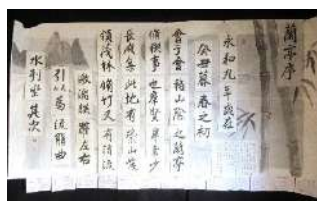 蘭亭序
永和九年歲在
癸丑暮春之初
會于會稽山陰之蘭亭
脩禊事也羣賢畢至少
長咸集此地有崇山峻
領茂林脩竹又有清流
激湍映帶左右
引以為流觴曲
水列坐其次